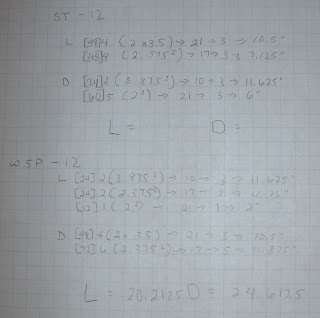 ST - 12
L [48]4 (2 x 3.5) → 21 → 3 → 10.5"
[48]4 (2.375²) → 17 → 3 → 7.125"
D [24]2 (3.875²) → 10 → 3 → 11.625"
[60]5 (2²) → 21 → 3 → 6"
L = D =
WSP - 12
L [24]2 (3.875²) → 10 → 3 → 11.625"
[24]2 (2.375²) → 17 →
[12]1 (2²) → 21 → 1 → 2"
D [48]4 (2 x 3.5) → 21 → 3 → 10.5"
[72]6 (2.375²) → 17 → 5 → 11.875"
L = 20.2125 D = 24.6125